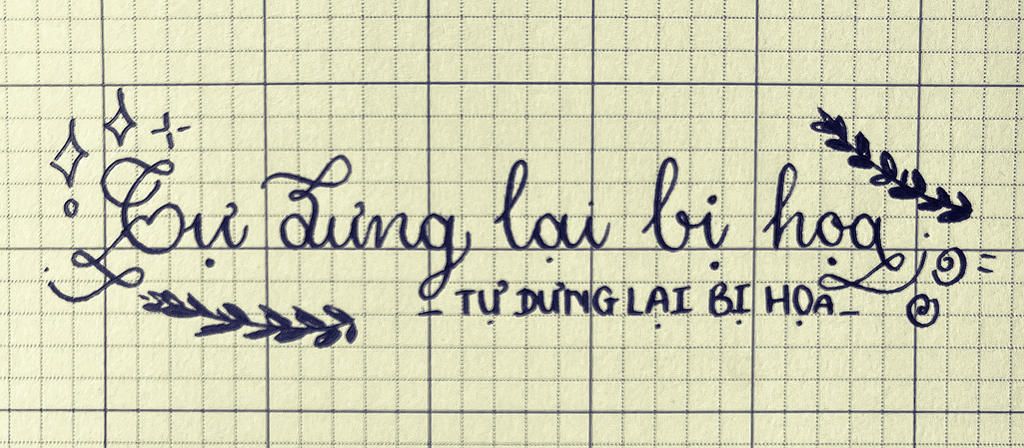 Tự dưng lại bị họa
- TỰ DƯNG LẠI BỊ HỌA -